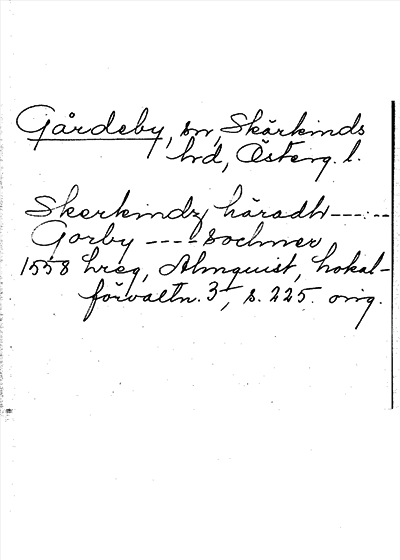 Gårdeby, sn, Skärkinds
hrd, Österg. l.
Skerkindz häradh ---:--
Gorby ---- sochner
1558 hreg, Almquist, Lokal-
förvaltn. 3, s. 225. orig.